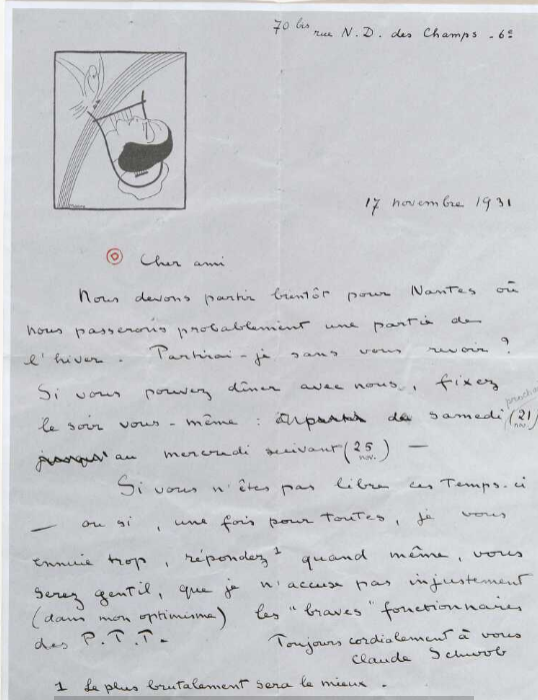 70 bis rue N. D. des Champs - 6e
17 novembre 1931
Cher ami
Nous devons partir bientôt pour Nantes où
nous passerons probablement une partie de
l'hiver. Partirai-je sans vous revoir ?
Si vous pouvez dîner avec nous, fixez
prochain
le soir vous-même : de samedi (21 nov.)
jusqu'au mercredi suivant (25 nov.) —
Si vous n'êtes pas libre ces Temps-ci
— ou si, une fois pour toutes, je vous
ennuie trop, répondez¹ quand même, vous
serez gentil, que je n'accuse pas injustement
(dans mon optimisme) les "braves" fonctionnaires
des P.T.T.
Toujours cordialement à vous
Claude Schwob
1 Le plus brutalement sera le mieux.